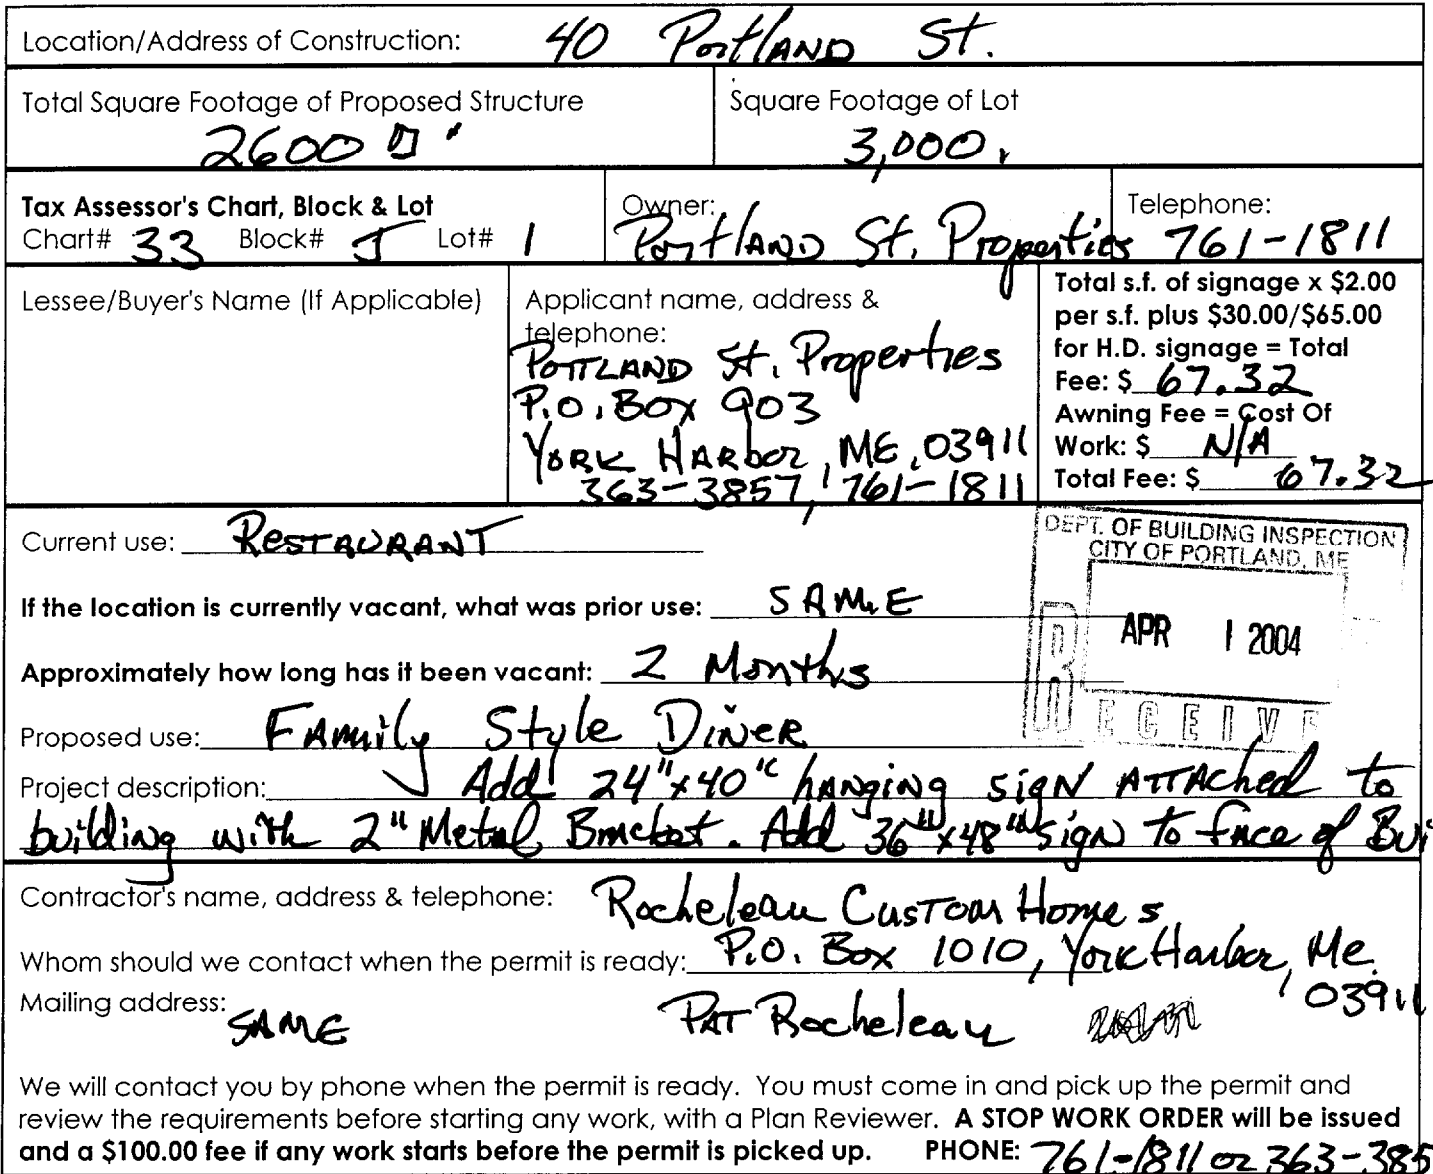 Location/Address of Construction: 40 Portland St.
Total Square Footage of Proposed Structure
2600
Square Footage of Lot
3,000
Tax Assessor's Chart, Block & Lot
Chart# 33 Block# J Lot# 1
Owner:
Portland St. Properties
Telephone:
761-1811
Lessee/Buyer's Name (If Applicable)
Applicant name, address &
telephone:
Portland St. Properties
P.O. Box 903
York Harbor, ME, 03911
363-3857, 761-1811
Total s.f. of signage x $2.00
per s.f. plus $30.00/$65.00
for H.D. signage = Total
Fee: $ 67.32
Awning Fee = Cost Of
Work: $ N/A
Total Fee: $ 67.32
Current use: Restaurant
DEPT. OF BUILDING INSPECTION
CITY OF PORTLAND, ME
APR 1 2004
RECEIVE
If the location is currently vacant, what was prior use: SAME
Approximately how long has it been vacant: 2 Months
Proposed use: Family Style Diner
Project description: Add 24"x40" hanging sign attached to
building with 2" Metal Bracket. Add 36"x48" sign to face of Bui
Contractor's name, address & telephone: Rocheleau Custom Homes
Whom should we contact when the permit is ready: P.O. Box 1010, York Harbor, Me.
03911
Mailing address: SAME Pat Rocheleau
We will contact you by phone when the permit is ready. You must come in and pick up the permit and
review the requirements before starting any work, with a Plan Reviewer. A STOP WORK ORDER will be issued
and a $100.00 fee if any work starts before the permit is picked up. PHONE: 761-1811 or 363-385